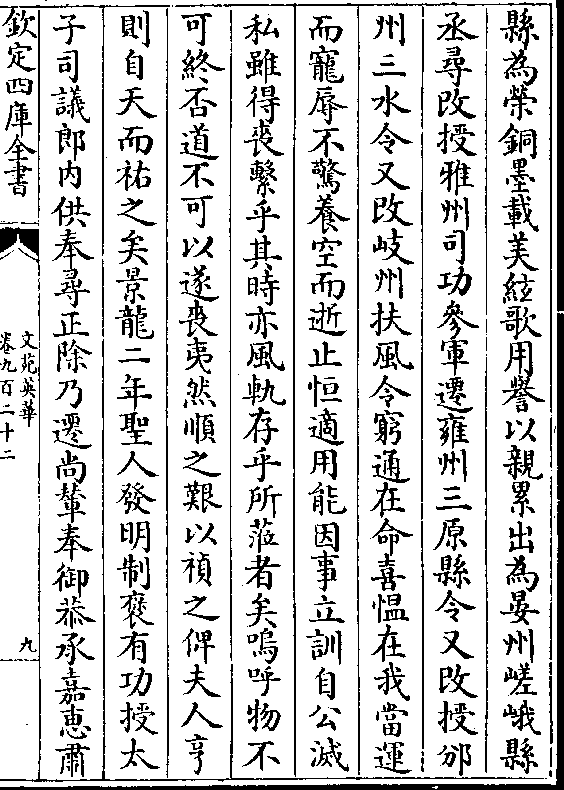 縣為榮銅墨載美絃歌用譽以親累出為晏州嵯峨縣
丞尋改授雅州司功參軍遷雍州三原縣令又改授邠
州三水令又改岐州扶風令窮通在命喜愠在我當運
而寵辱不驚養空而逝止恒適用能因事立訓自公滅
私雖得喪繫乎其時亦風軌存乎所蒞者矣嗚呼物不
可終否道不可以遂喪夷然順之艱以禎之俾夫人亨
則自天而祐之矣景龍二年聖人發明制褒有功授太
子司議郎内供奉尋正除乃遷尚輦奉御恭承嘉恵肅
欽定四庫全書
文苑英華
卷九百二十二
九